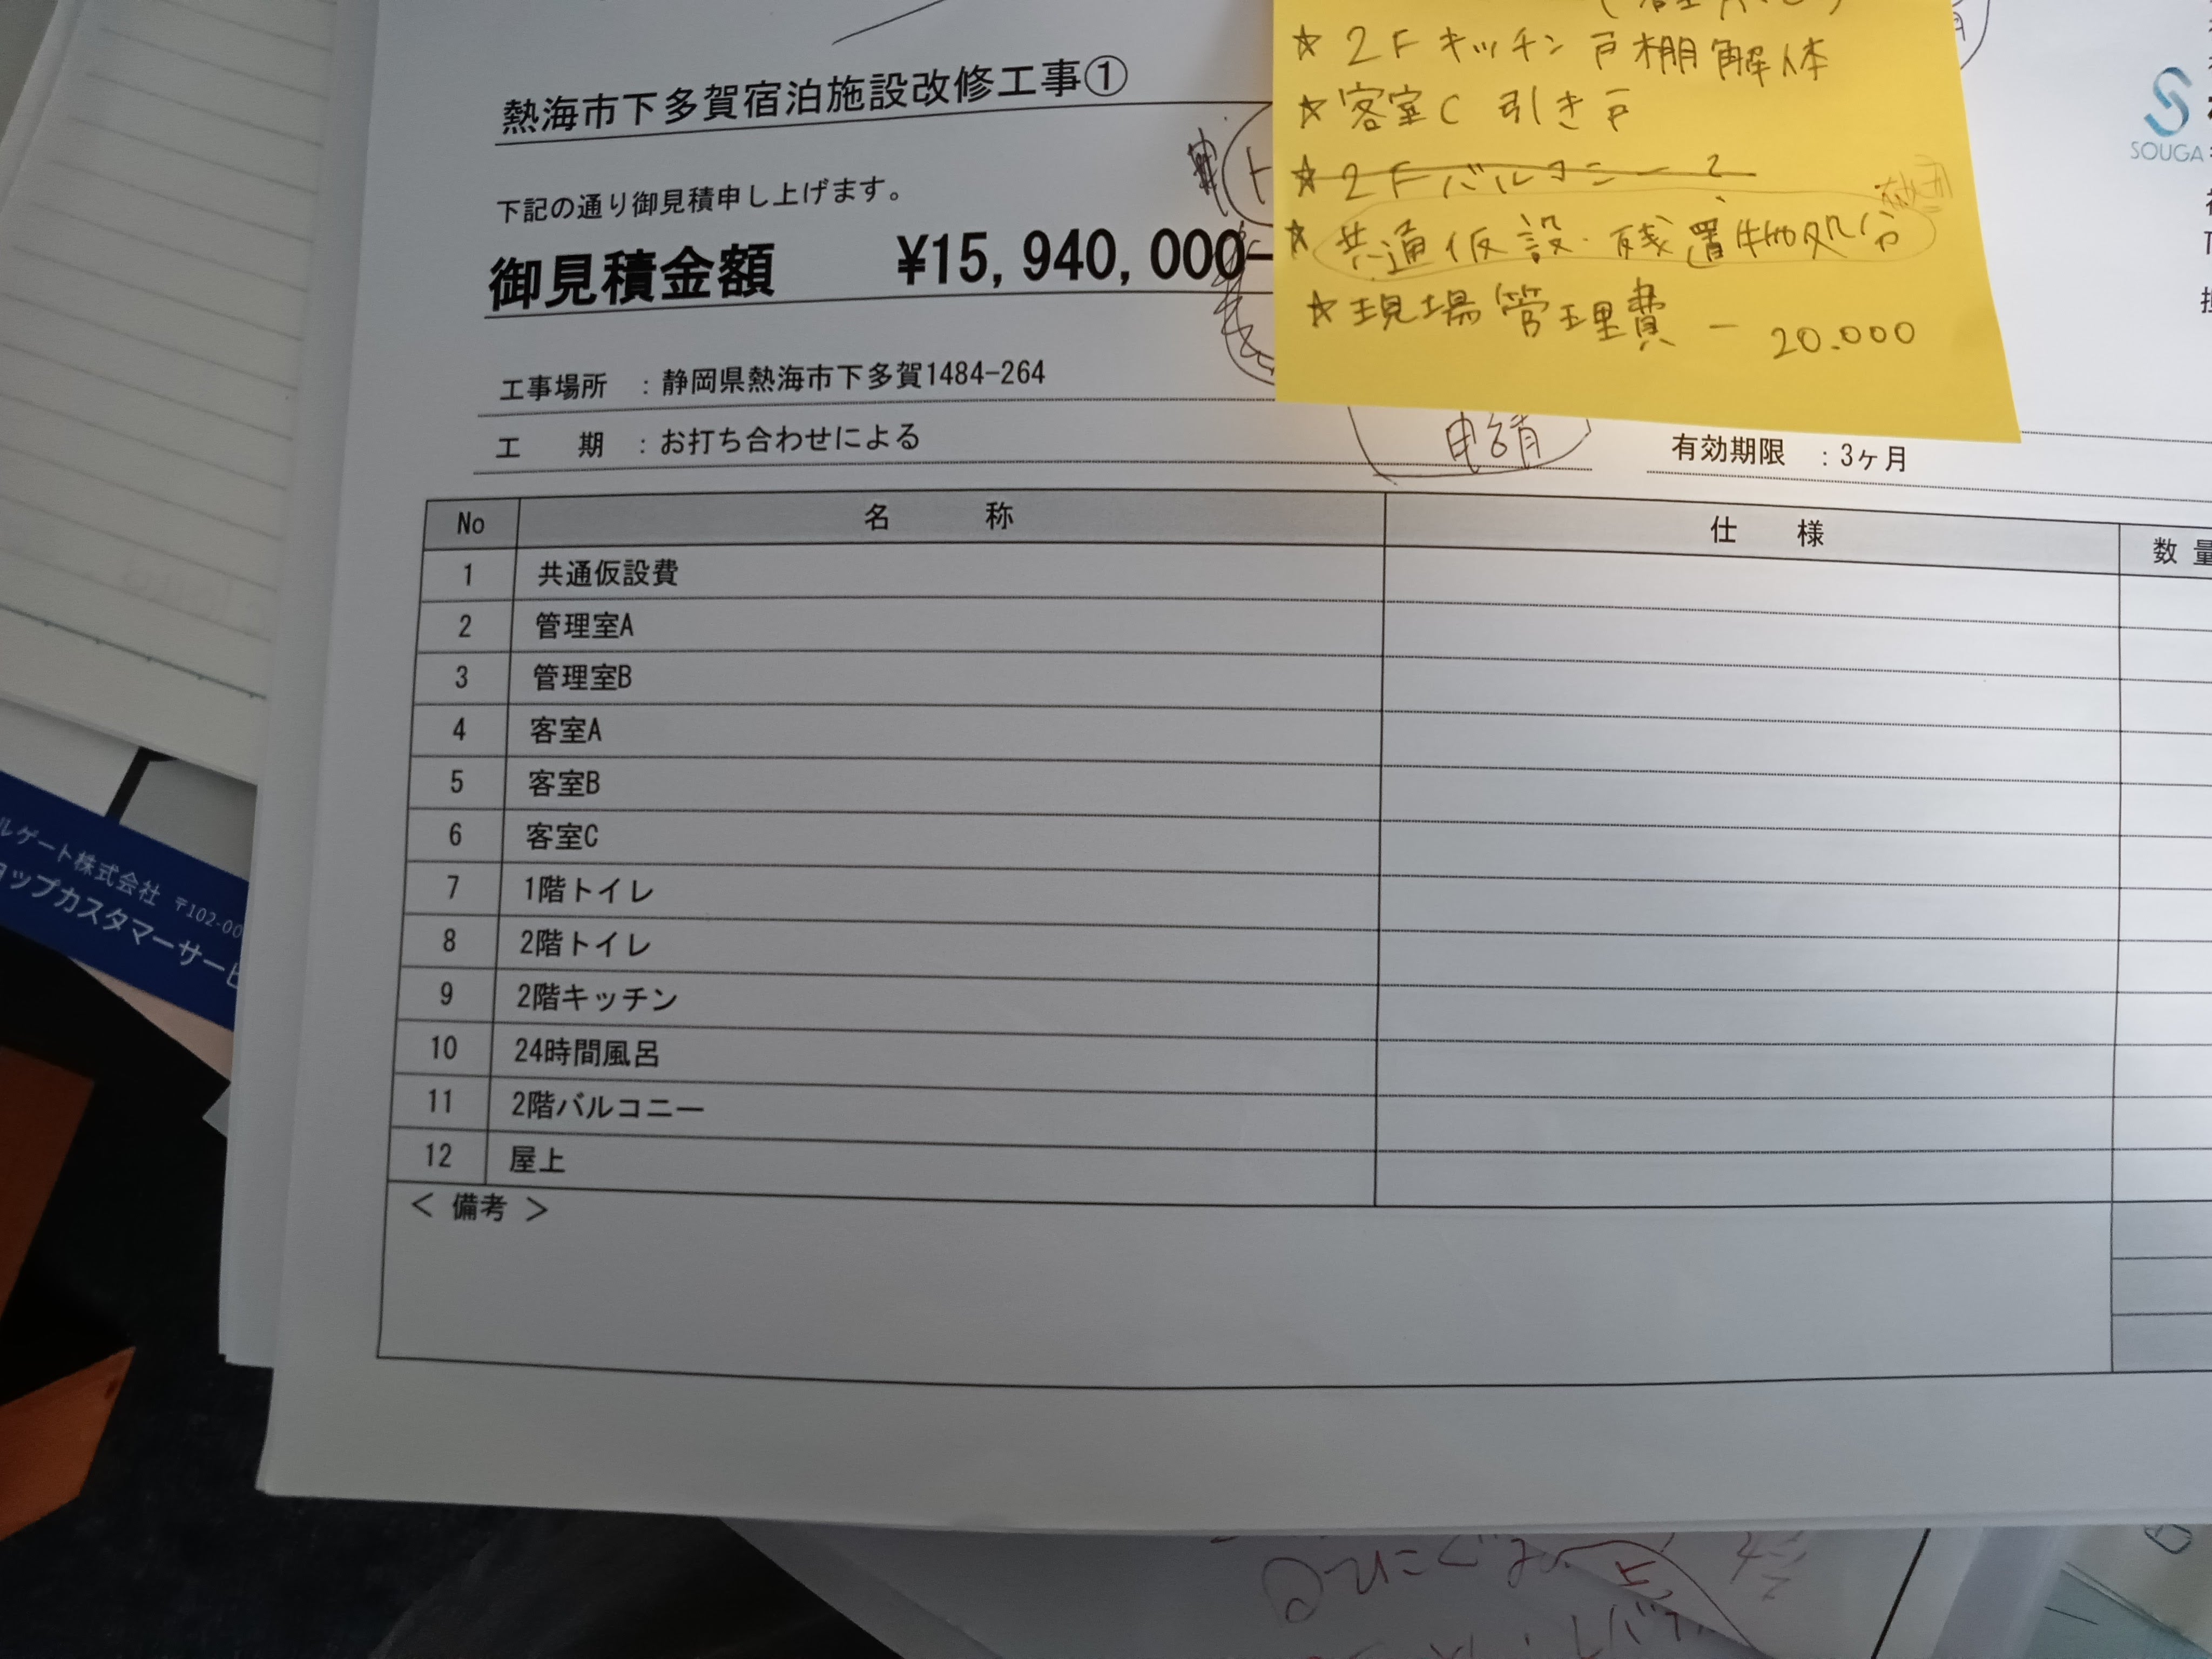 熱海市下多賀宿泊施設改修工事①
下記の通り御見積申し上げます。
御見積金額 ¥15,940,000-
工事場所 :静岡県熱海市下多賀1484-264
工 期 :お打ち合わせによる
申請
有効期限 :3ヶ月
☆2Fキッチン戸棚解体
☆客室C 引き戸
☆2Fバルコニー?
☆共通仮設.残置物処分
☆現場管理費 - 20.000
SOUGA
No 名 称 仕 様 数 量
1 共通仮設費
2 管理室A
3 管理室B
4 客室A
5 客室B
6 客室C
7 1階トイレ
8 2階トイレ
9 2階キッチン
10 24時間風呂
11 2階バルコニー
12 屋上
< 備考 >
ルゲート株式会社 〒102-00
ョップカスタマーサービ